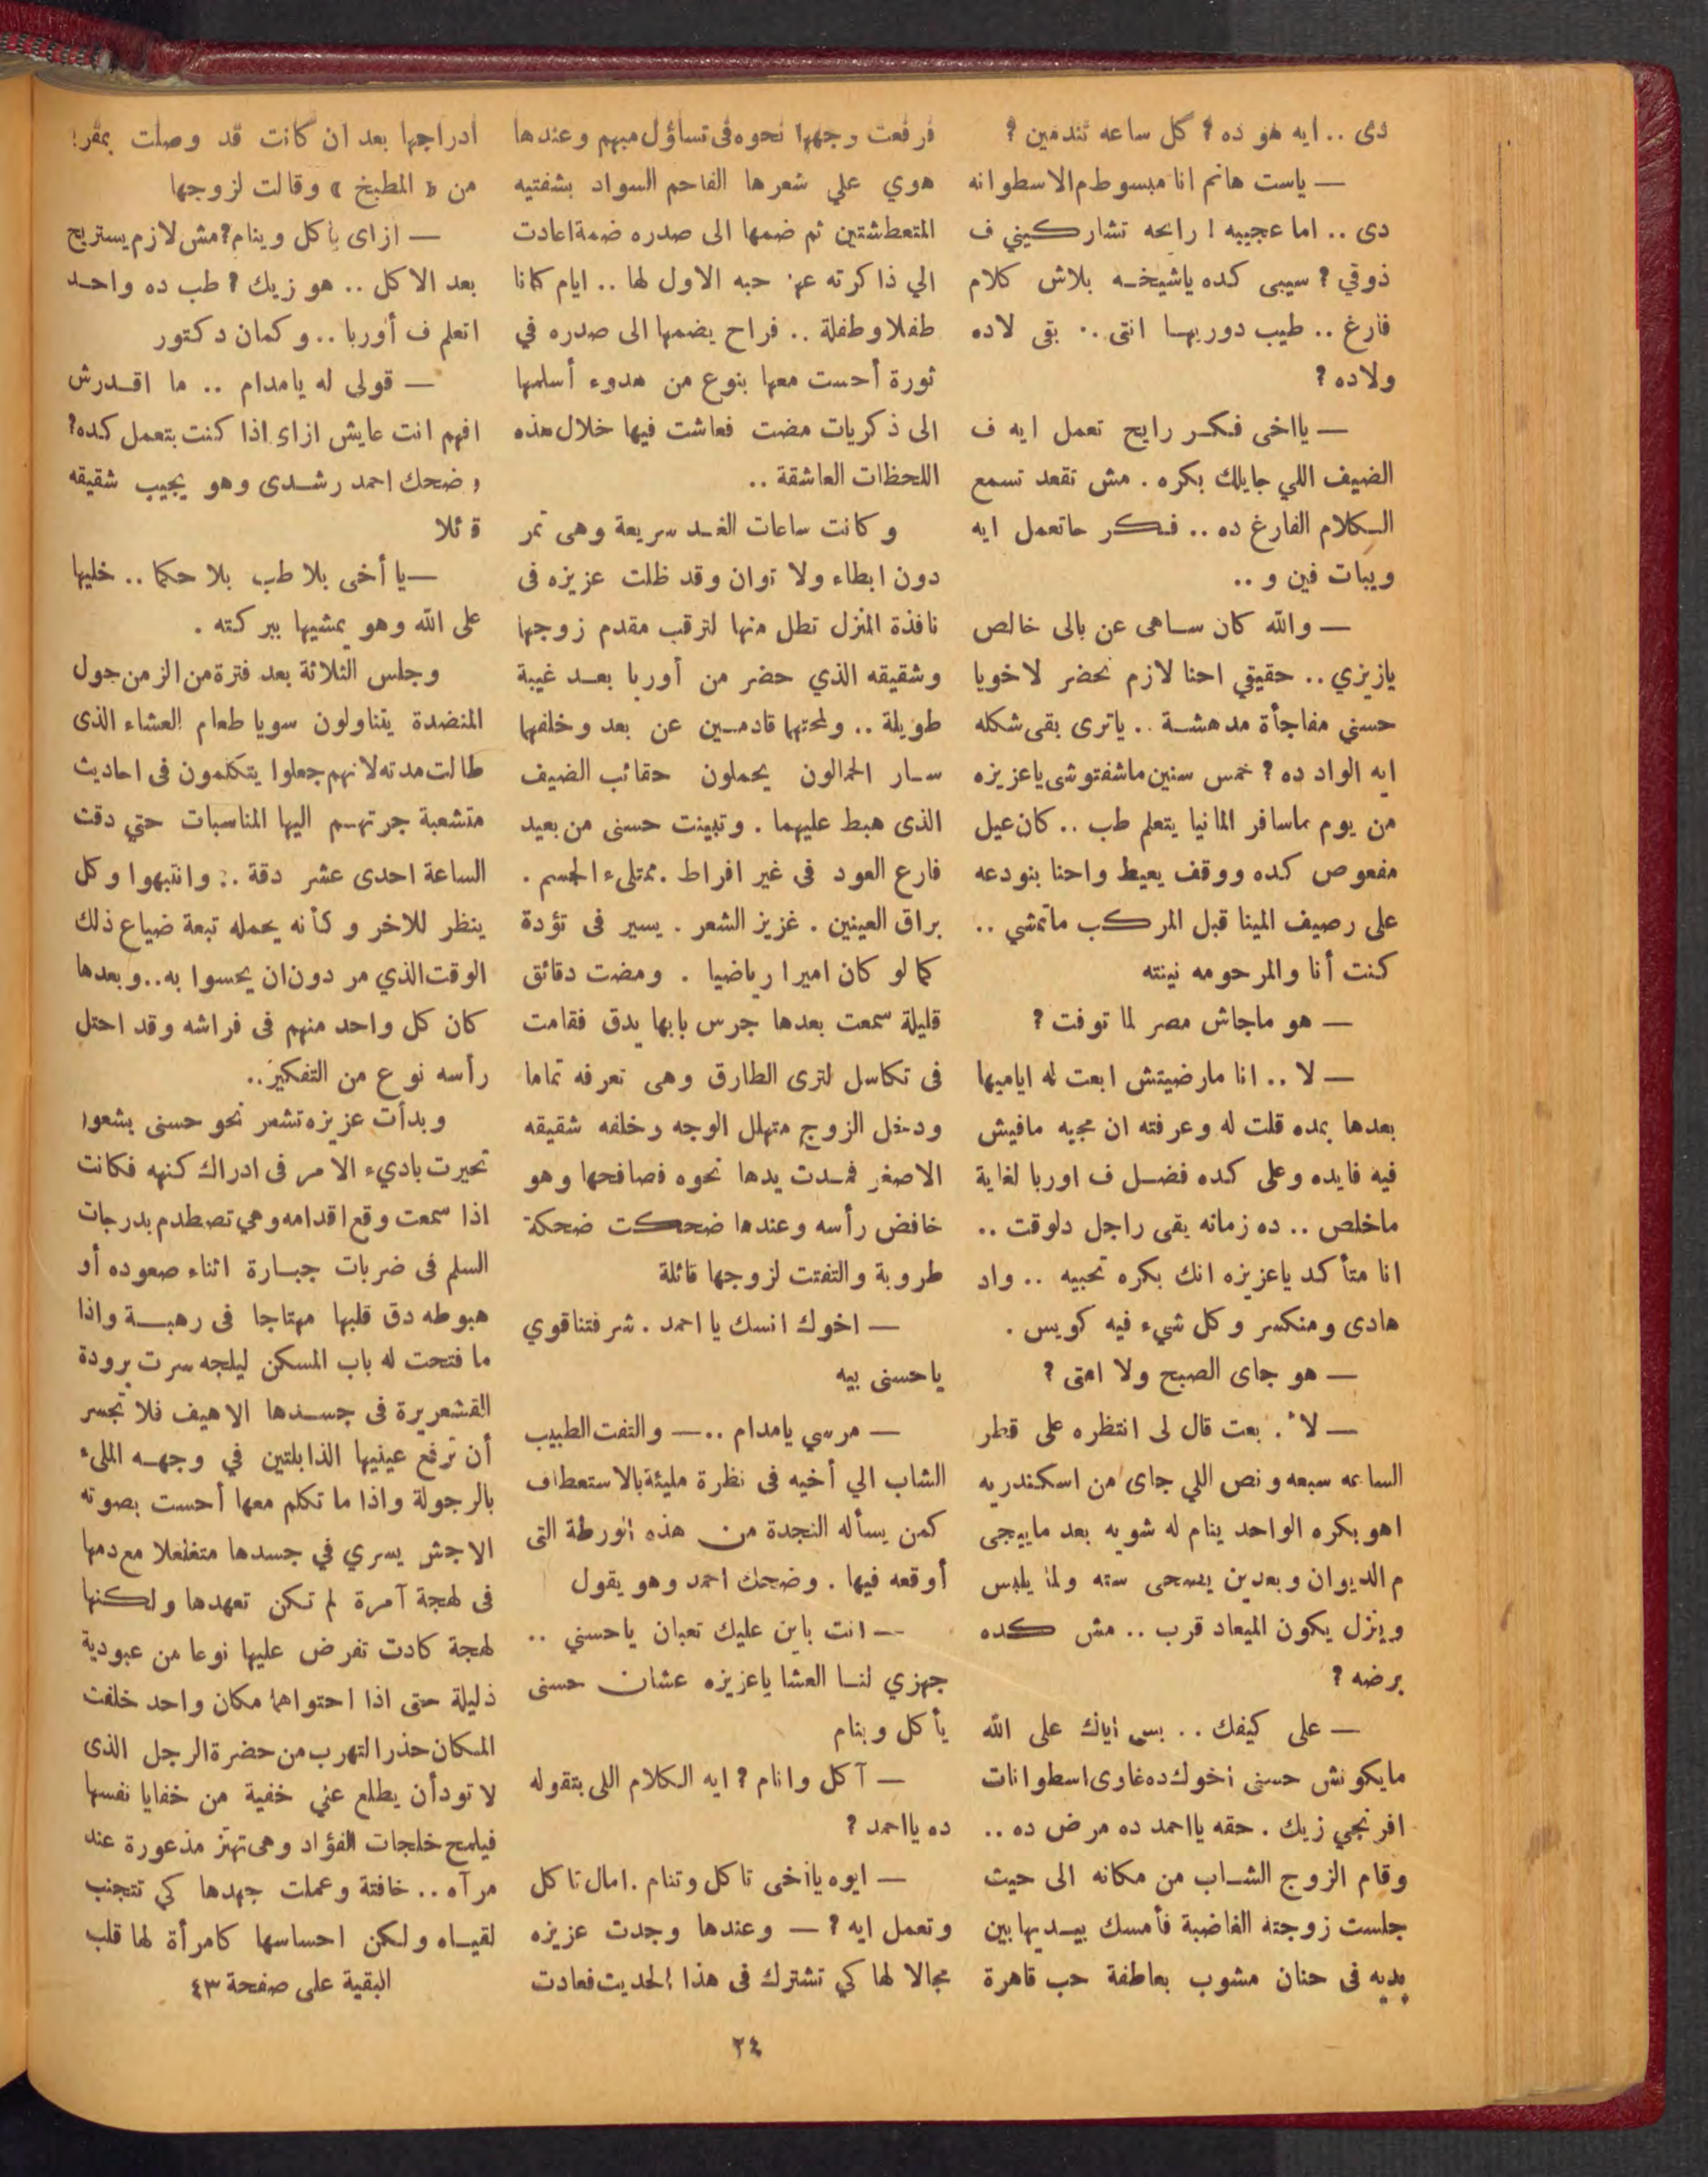 دى .. ايه هو ده ? كل ساعه تندمين ?
— ياست هانم انا مبسوط م الاسطوانه
دى .. اما عجيبه ! رايحه تشاركيني ف
ذوقي ? سيبى كده ياشيخه بلاش كلام
فارغ .. طيب دوريها انتى .. بقى لاده
ولاده ?
— يااخى فكر رايح تعمل ايه ف
الضيف اللي جايلك بكره . مش تقعد تسمع
الكلام الفارغ ده .. فكر حاتعمل ايه
ويبات فين و ..
— والله كان ساهى عن بالى خالص
يازيزي .. حقيقي احنا لازم نحضر لاخويا
حسني مفاجأة مدهشة .. ياترى بقى شكله
ايه الواد ده ? خمس سنين ماشفتوشى ياعزيزه
من يوم ماسافر المانيا يتعلم طب .. كان عيل
مفعوص كده ووقف يعيط واحنا بنودعه
على رصيف المينا قبل المركب ماتمشي ..
كنت أنا والمرحومه نينته
— هو ماجاش مصر لما توفت ?
— لا .. انا مارضيتش ابعت له اياميها
بعدها بمده قلت له وعرفته ان مجيه مافيش
فيه فايده وعلى كده فضل ف اوربا لغاية
ماخلص .. ده زمانه بقى راجل دلوقت ..
انا متأكد ياعزيزه انك بكره تحبيه .. واد
هادى ومنكسر وكل شيء فيه كويس .
— هو جاى الصبح ولا امتى ?
— لأ . بعت قال لى انتظره على قطر
الساعه سبعه ونص اللي جاى من اسكندريه
اهو بكره الواحد ينام له شويه بعد ماييجى
م الديوان وبعدين يصحى سته ولما يلبس
وينزل يكون الميعاد قرب .. مش كده
برضه ?
— على كيفك .. بس اياك على الله
مايكونش حسنى اخوك ده غاوى اسطوانات
افرنجي زيك . حقه يااحمد ده مرض ده ..
وقام الزوج الشاب من مكانه الى حيث
جلست زوجته الغاضبة فأمسك بيديها بين
يديه فى حنان مشوب بعاطفة حب قاهرة
فرفعت وجهها نحوه فى تساؤل مبهم وعندها
هوي علي شعرها الفاحم السواد بشفتيه
المتعطشتين ثم ضمها الى صدره ضمة اعادت
الي ذاكرته عن حبه الاول لها .. ايام كانا
طفلا وطفلة .. فراح يضمها الى صدره في
ثورة أحست معها بنوع من هدوء أسلمها
الى ذكريات مضت فعاشت فيها خلال هذه
اللحظات العاشقة ..
وكانت ساعات الغد سريعة وهى تمر
دون ابطاء ولا توان وقد ظلت عزيزه فى
نافذة المنزل تطل منها لترقب مقدم زوجها
وشقيقه الذي حضر من أوربا بعد غيبة
طويلة .. ولمحتهما قادمين عن بعد وخلفهما
سار الحمالون يحملون حقائب الضيف
الذى هبط عليهما . وتبينت حسنى من بعيد
فارع العود فى غير افراط . ممتلىء الجسم .
براق العينين . غزيز الشعر . يسير فى تؤدة
كما لو كان اميرا رياضيا . ومضت دقائق
قليلة سمعت بعدها جرس بابها يدق فقامت
فى تكاسل لترى الطارق وهى تعرفه تماما
ودخل الزوج متهلل الوجه وخلفه شقيقه
الاصغر فمدت يدها نحوه فصافحها وهو
خافض رأسه وعندها ضحكت ضحكة
طروبة والتفتت لزوجها قائلة
— اخوك انسك يا احمد . شرفتنا قوي
ياحسنى بيه
— مرسي يامدام .. — والتفت الطبيب
الشاب الي أخيه فى نظرة مليئة بالاستعطاف
كمن يسأله النجدة من هذه الورطة التى
أوقعه فيها . وضحك احمد وهو يقول
— انت باين عليك تعبان ياحسني ..
جهزي لنا العشا ياعزيزه عشان حسنى
يأكل وينام
— آكل وانام ? ايه الكلام اللى بتقوله
ده يااحمد ?
— ايوه يااخى تاكل وتنام . امال تاكل
وتعمل ايه ? — وعندها وجدت عزيزه
مجالا لها كي تشترك فى هذا الحديث فعادت
ادراجها بعد ان كانت قد وصلت بمقر
من « المطبخ » وقالت لزوجها
— ازاى يأكل وينام ? مش لازم يستريح
بعد الاكل .. هو زيك ? طب ده واحد
اتعلم ف أوربا .. وكمان دكتور
— قولى له يامدام .. ما اقدرش
افهم انت عايش ازاى اذا كنت بتعمل كده ?
وضحك احمد رشدى وهو يجيب شقيقه
قائلا
— يا أخى بلا طب بلا حكما .. خليها
على الله وهو يمشيها ببركته .
وجلس الثلاثة بعد فترة من الزمن حول
المنضدة يتناولون سويا طعام العشاء الذى
طالت مدته لانهم جعلوا يتكلمون فى احاديث
متشعبة جرتهم اليها المناسبات حتي دقت
الساعة احدى عشر دقة .. وانتبهوا وكل
ينظر للاخر وكأنه يحمله تبعة ضياع ذلك
الوقت الذي مر دون ان يحسوا به .. وبعدها
كان كل واحد منهم فى فراشه وقد احتل
رأسه نوع من التفكير ..
وبدأت عزيزه تشعر نحو حسنى بشعور
تحيرت باديء الامر فى ادراك كنهه فكانت
اذا سمعت وقع اقدامه وهي تصطدم بدرجات
السلم فى ضربات جبارة اثناء صعوده أو
هبوطه دق قلبها مهتاجا فى رهبة واذا
ما فتحت له باب المسكن ليلجه سرت برودة
القشعريرة فى جسدها الاهيف فلا تجسر
أن ترفع عينيها الذابلتين في وجهه الملىء
بالرجولة واذا ما تكلم معها أحست بصوته
الاجش يسري في جسدها متغلغلا مع دمها
فى لهجة آمرة لم تكن تعهدها ولكنها
لهجة كادت تفرض عليها نوعا من عبودية
ذليلة حتى اذا احتواهما مكان واحد خلفت
المكان حذر التهرب من حضرة الرجل الذى
لا تود أن يطلع عني خفية من خفايا نفسها
فيلمح خلجات الفؤاد وهى تهتز مذعورة عند
مرآه .. خافتة وعملت جهدها كي تتجنب
لقياه ولكن احساسها كامرأة لها قلب
البقية على صفحة ٤٣
٢٤